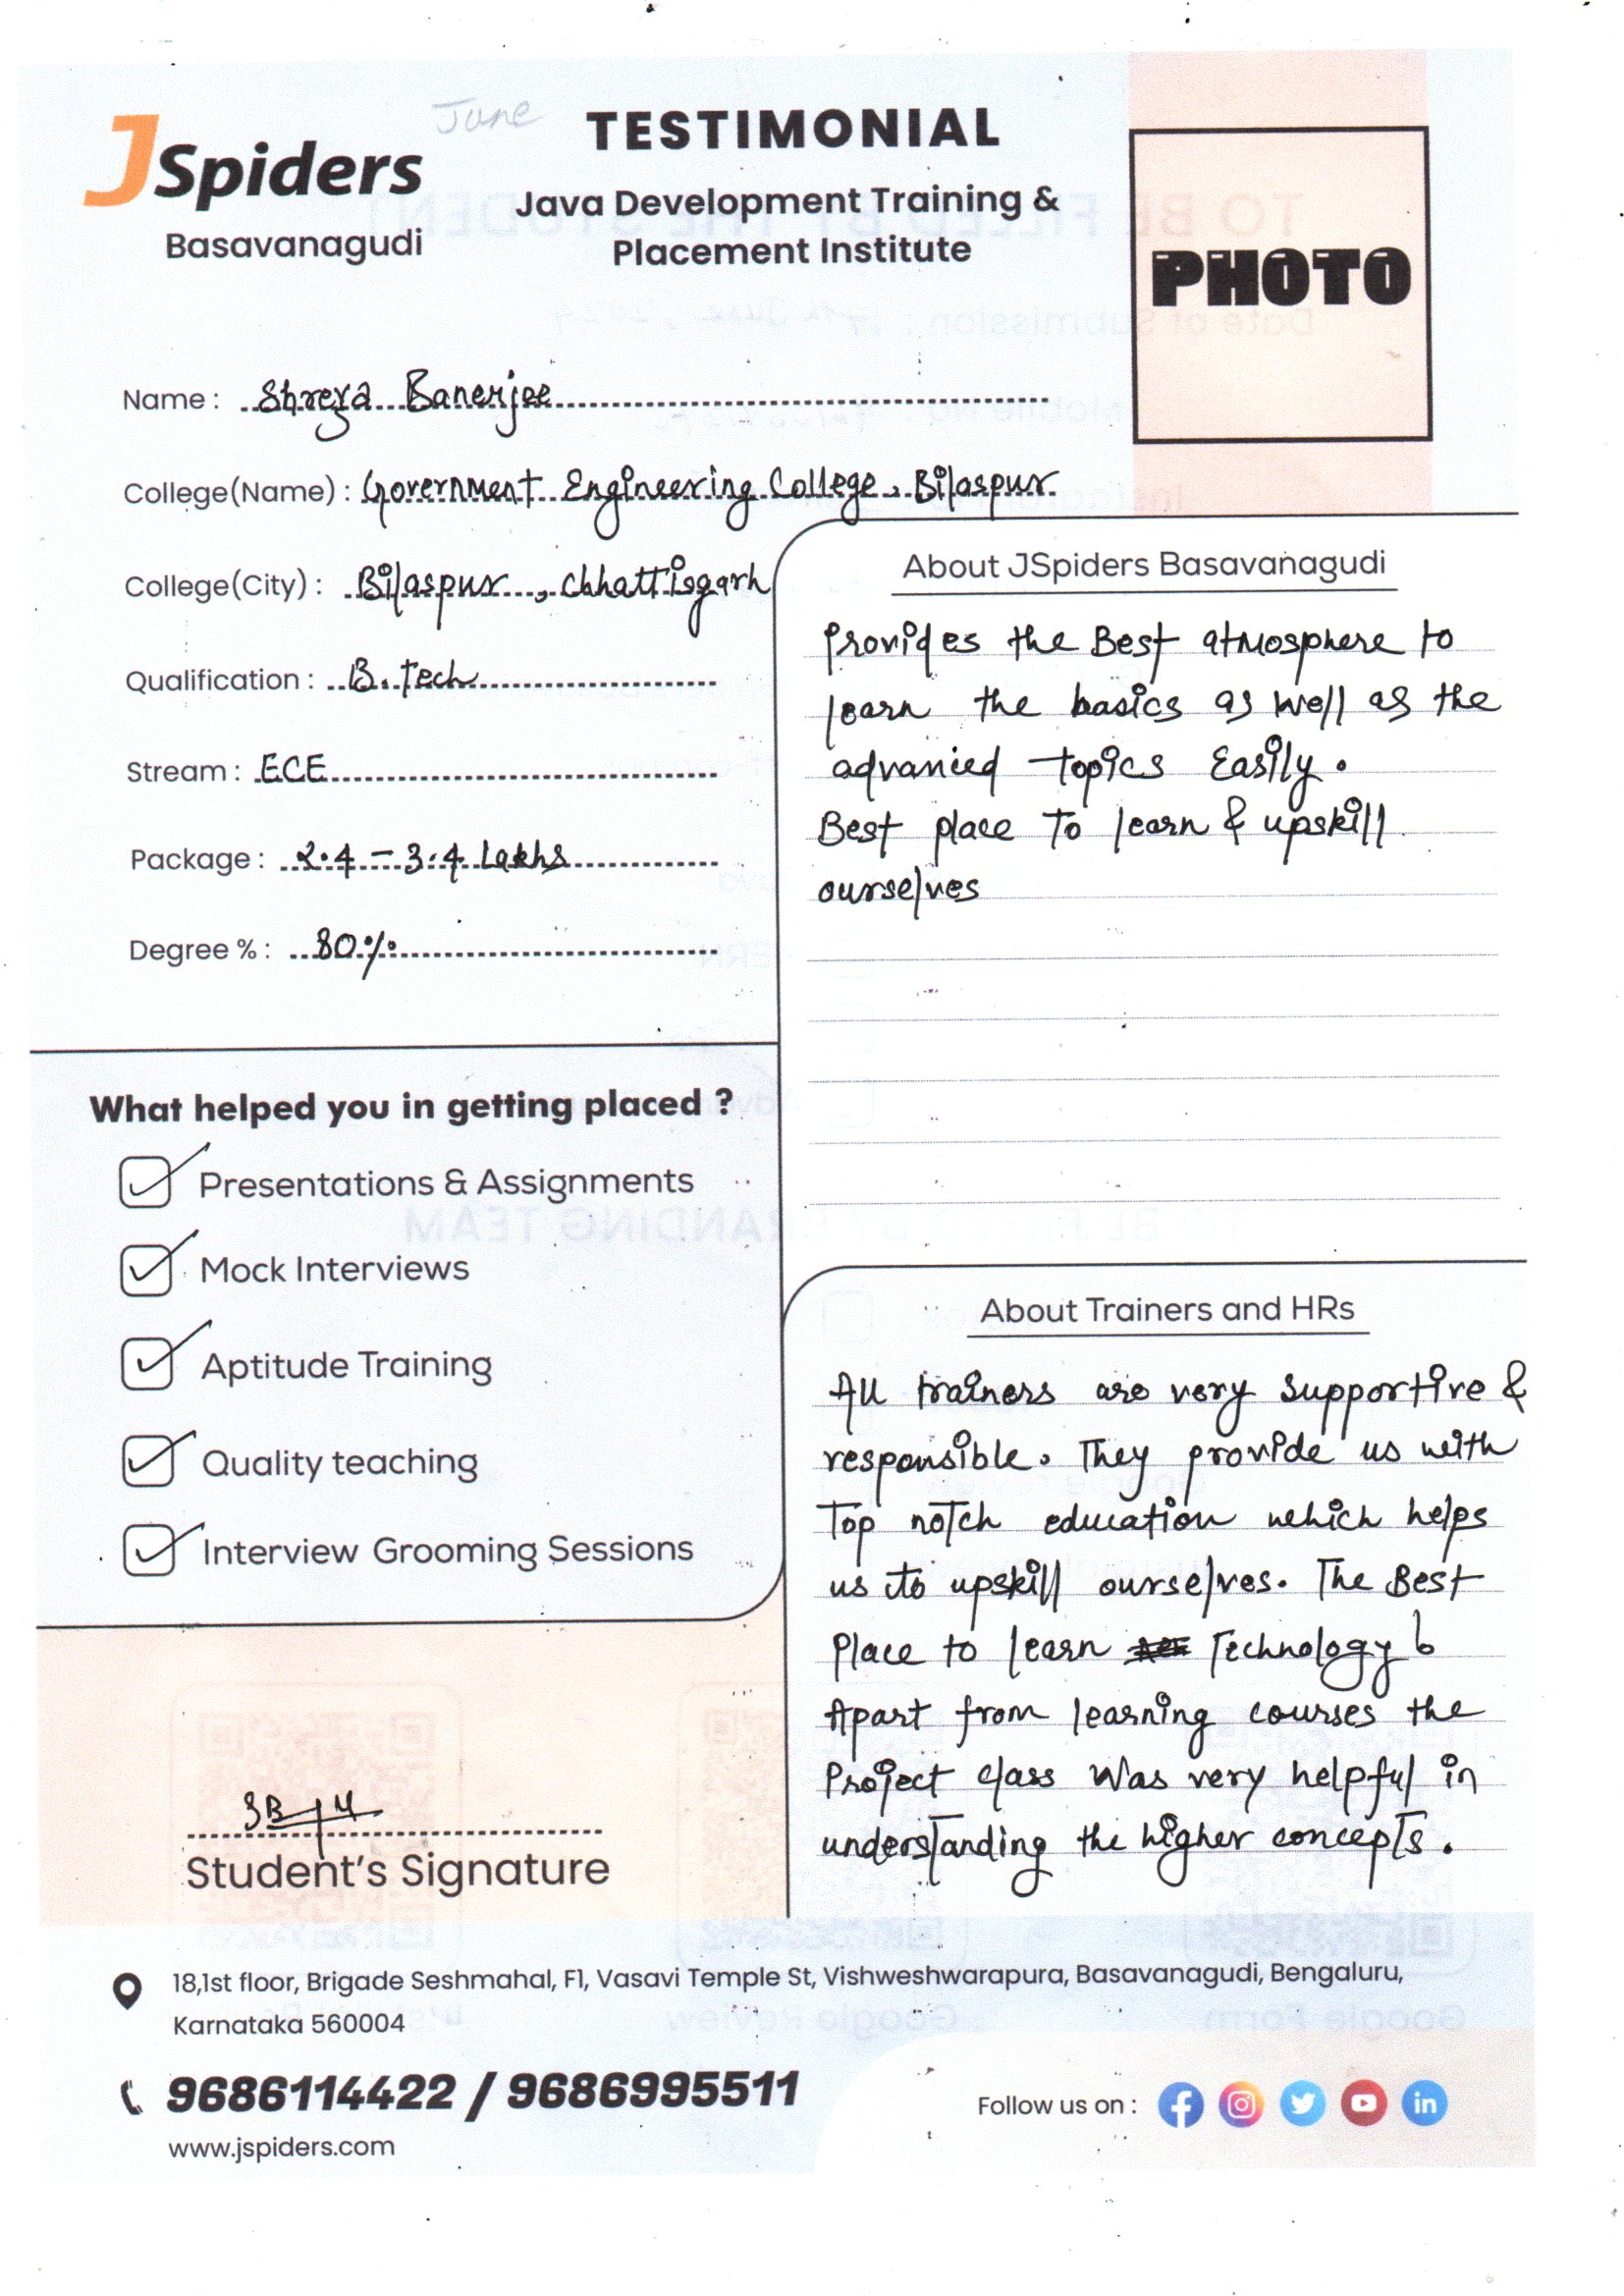 June
JSpiders
Basavanagudi
TESTIMONIAL
Java Development Training &
Placement Institute
PHOTO
Name : Shreya Banerjee
College(Name) : Government Engineering College, Bilaspur
College(City) : Bilaspur, Chhattisgarh
Qualification : B.Tech
Stream : ECE
Package : 2.4 - 3.4 Lakhs
Degree % : 80%
What helped you in getting placed ?
Presentations & Assignments
Mock Interviews
Aptitude Training
Quality teaching
Interview Grooming Sessions
Student's Signature
About JSpiders Basavanagudi
Provides the Best atmosphere to
learn the basics as well as the
advanced topics Easily.
Best place To learn & upskill
ourselves
About Trainers and HRs
All trainers are very supportive &
responsible. They provide us with
Top notch education which helps
us to upskill ourselves. The Best
Place to learn Technology
Apart from learning courses the
Project class Was very helpful in
understanding the higher concepts.
18,1st floor, Brigade Seshmahal, F1, Vasavi Temple St, Vishweshwarapura, Basavanagudi, Bengaluru,
Karnataka 560004
9686114422 / 9686995511
www.jspiders.com
Follow us on :